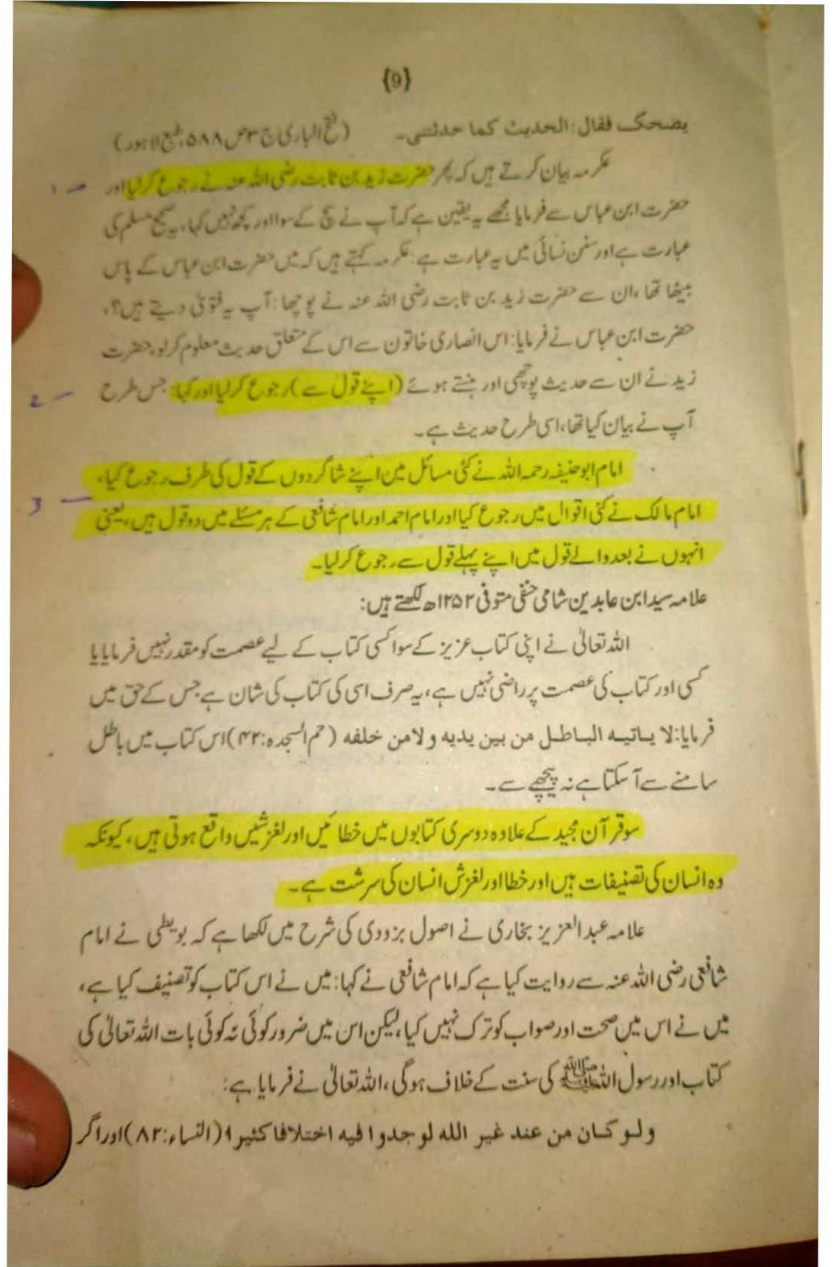 {9}
يضحك فقال: الحديث كما حدثتنى۔ (فتح الباری ج ۳ ص ۵۸۸، طبع لاہور)
عکرمہ بیان کرتے ہیں کہ پھر حضرت زید بن ثابت رضی اللہ عنہ نے رجوع کرلیا اور
1 –
حضرت ابن عباس سے فرمایا مجھے یہ یقین ہے کہ آپ نے سچ کے سوا اور کچھ نہیں کہا، یہ صحیح مسلم کی
عبارت ہے اور سنن نسائی میں یہ عبارت ہے: عکرمہ کہتے ہیں کہ میں حضرت ابن عباس کے پاس
بیٹھا تھا، ان سے حضرت زید بن ثابت رضی اللہ عنہ نے پوچھا: آپ یہ فتویٰ دیتے ہیں؟،
حضرت ابن عباس نے فرمایا: اس انصاری خاتون سے اس کے متعلق حدیث معلوم کرلو، حضرت
زید نے ان سے حدیث پوچھی اور ہنستے ہوئے (اپنے قول سے) رجوع کرلیا اور کہا: جس طرح
2 –
آپ نے بیان کیا تھا، اسی طرح حدیث ہے۔
امام ابوحنیفہ رحمہ اللہ نے کئی مسائل میں اپنے شاگردوں کے قول کی طرف رجوع کیا،
3 –
امام مالک نے کئی اقوال میں رجوع کیا اور امام احمد اور امام شافعی کے ہر مسئلے میں دو قول ہیں، یعنی
انہوں نے بعد والے قول میں اپنے پہلے قول سے رجوع کرلیا۔
علامہ سید ابن عابدین شامی حنفی متوفی ۱۲۵۲ھ لکھتے ہیں:
اللہ تعالیٰ نے اپنی کتاب عزیز کے سوا کسی کتاب کے لیے عصمت کو مقدر نہیں فرمایا یا
کسی اور کتاب کی عصمت پر راضی نہیں ہے، یہ صرف اسی کی کتاب کی شان ہے جس کے حق میں
فرمایا: لا یاتیه الباطل من بین یدیه ولا من خلفه (حم السجدہ: ۴۲) اس کتاب میں باطل
سامنے سے آسکتا ہے نہ پیچھے سے۔
سو قرآن مجید کے علاوہ دوسری کتابوں میں خطائیں اور لغزشیں واقع ہوتی ہیں، کیونکہ
وہ انسان کی تصنیفات ہیں اور خطا اور لغزش انسان کی سرشت ہے۔
علامہ عبدالعزیز بخاری نے اصول بزدوی کی شرح میں لکھا ہے کہ بویطی نے امام
شافعی رضی اللہ عنہ سے روایت کیا ہے کہ امام شافعی نے کہا: میں نے اس کتاب کو تصنیف کیا ہے،
میں نے اس میں صحت اور صواب کو ترک نہیں کیا، لیکن اس میں ضرور کوئی نہ کوئی بات اللہ تعالیٰ کی
کتاب اور رسول اللہ ﷺ کی سنت کے خلاف ہوگی، اللہ تعالیٰ نے فرمایا ہے:
ولو كان من عند غير الله لوجدوا فيه اختلافا كثيرا (النساء: ۸۲) اور اگر